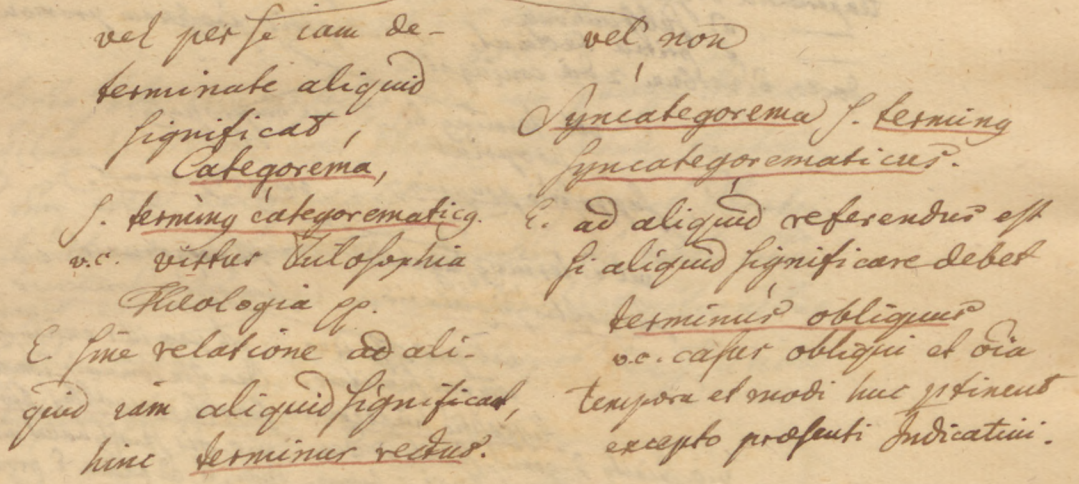 vel per se iam de-
terminate aliquid
significat,
Categorema,
s. terming categorematicq.
v.c. virtus Philosophia
Theologia pp.
E. sine relatione ad ali-
quid iam aliquid significat,
hinc terminus rectus.
vel non
Syncategorema s. terming
syncategorematicus.
E. ad aliquid referendus est
si aliquid significare debet
terminus obliquus
v.c. casus obliqui et oia
tempora et modi huc ptinent
excepto praesenti Indicativi.